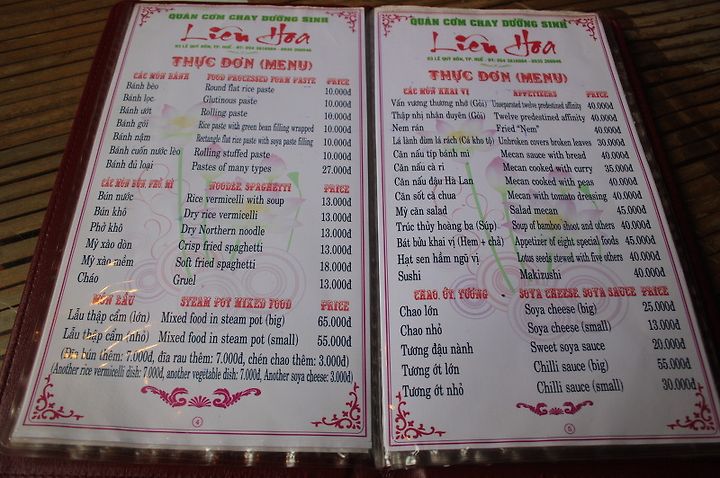 QUÁN CƠM CHAY DƯỠNG SINH
Liên Hoa
03 LÊ QUÝ ĐÔN, TP. HUẾ
THỰC ĐƠN (MENU)
CÁC MÓN BÁNH FOOD PROCESSED FORM PASTE PRICE
Bánh bèo Round flat rice paste 10.000đ
Bánh lọc Glutinous paste 10.000đ
Bánh ướt Rolling paste 10.000đ
Bánh gói Rice paste with green bean filling wrapped 10.000đ
Bánh nậm Rectangle flat rice paste with soya paste filling 10.000đ
Bánh cuốn nước lèo Rolling stuffed paste 10.000đ
Bánh đủ loại Pastes of many types 27.000đ
CÁC MÓN BÚN, PHỞ, MÌ NOODLE, SPAGHETTI PRICE
Bún nước Rice vermicelli with soup 13.000đ
Bún khô Dry rice vermicelli 13.000đ
Phở khô Dry Northern noodle 13.000đ
Mỳ xào dòn Crisp fried spaghetti 13.000đ
Mỳ xào mềm Soft fried spaghetti 18.000đ
Cháo Gruel 13.000đ
MÓN LẨU STEAM POT MIXED FOOD PRICE
Lẩu thập cẩm (lớn) Mixed food in steam pot (big) 65.000đ
Lẩu thập cẩm (nhỏ) Mixed food in steam pot (small) 55.000đ
(Dĩa bún thêm: 7.000đ, dĩa rau thêm: 7.000đ, chén chao thêm: 3.000đ)
(Another rice vermicelli dish: 7.000đ, another vegetable dish: 7.000đ, Another soya cheese: 3.000đ)
4
QUÁN CƠM CHAY DƯỠNG SINH
Liên Hoa
03 LÊ QUÝ ĐÔN, TP. HUẾ
THỰC ĐƠN (MENU)
CÁC MÓN KHAI VỊ APPETIZERS PRICE
Vấn vương thương nhớ (Gỏi) Unseparated twelve predestined affinity 40.000đ
Thập nhị nhân duyên (Gỏi) Twelve predestined affinity 40.000đ
Nem rán Fried "Nem" 40.000đ
Lá lành đùm lá rách (Cá kho tộ) Unbroken covers broken leaves 30.000đ
Căn nấu típ bánh mì Mecan sauce with bread 40.000đ
Căn nấu cà ri Mecan cooked with curry 35.000đ
Căn nấu đậu Hà Lan Mecan cooked with peas 40.000đ
Căn sốt cà chua Mecan with tomato dressing 40.000đ
Mỳ căn salad Salad mecan 45.000đ
Trúc thủy hoàng ba (Súp) Soup of bamboo shoot and others 40.000đ
Bát bửu khai vị (Hem + chả) Appetizer of eight special foods 45.000đ
Hạt sen hầm ngũ vị Lotus seeds stewed with five others 40.000đ
Sushi Makizushi 40.000đ
CHAO, ỚT, TƯƠNG SOYA CHEESE, SOYA SAUCE PRICE
Chao lớn Soya cheese (big) 25.000đ
Chao nhỏ Soya cheese (small) 13.000đ
Tương đậu nành Sweet soya sauce 20.000đ
Tương ớt lớn Chilli sauce (big) 55.000đ
Tương ớt nhỏ Chilli sauce (small) 30.000đ
5